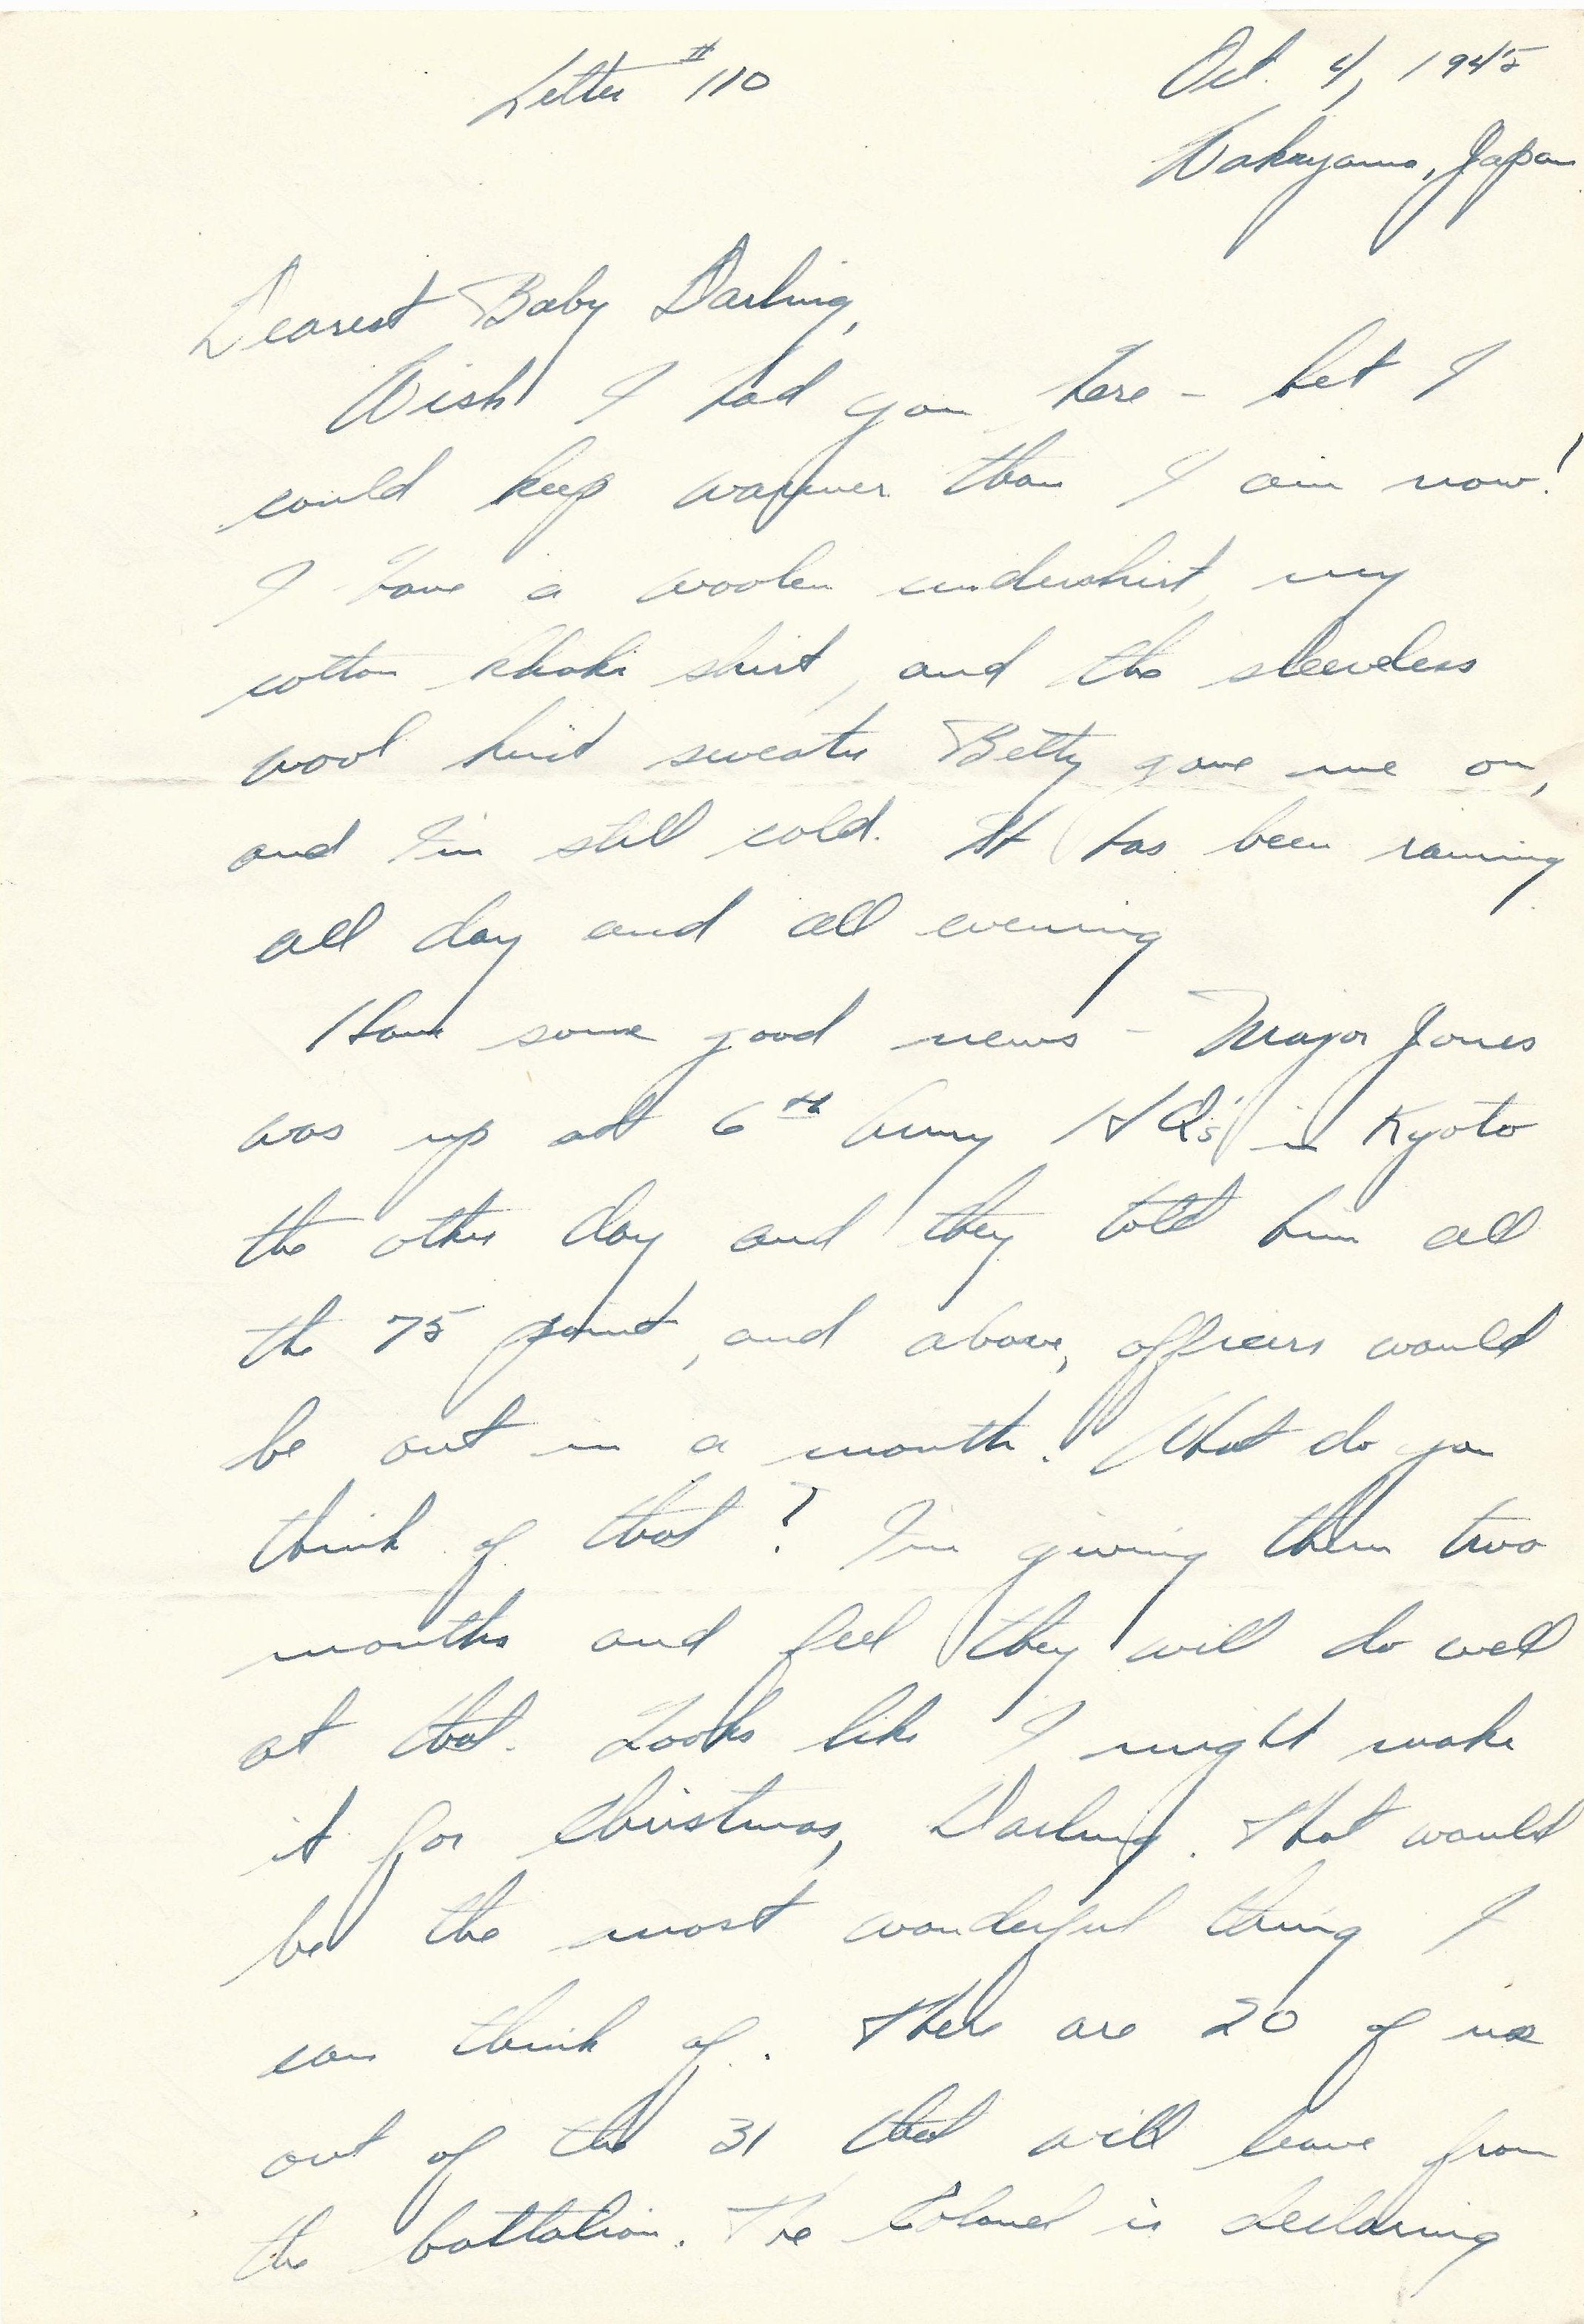 Letter #110
Oct. 4, 1945
Wakayama, Japan
Dearest Baby Darling,
Wish I had you here - bet I
could keep warmer than I am now!
I have a woolen undershirt, my
cotton khaki shirt, and the sleeveless
wool knit sweater Betty gave me on,
and I'm still cold. It has been raining
all day and all evening
Have some good news - Major Jones
was up at 6th Army HQ's in Kyoto
the other day and they told him all
the 75 point, and above, officers would
be out in a month. What do you
think of that? I'm giving them two
months and feel they will do well
at that. Looks like I might make
it for Christmas, Darling. That would
be the most wonderful thing I
can think of. There are 20 of us
out of the 31 that will leave from
the battalion. The Colonel is declaring